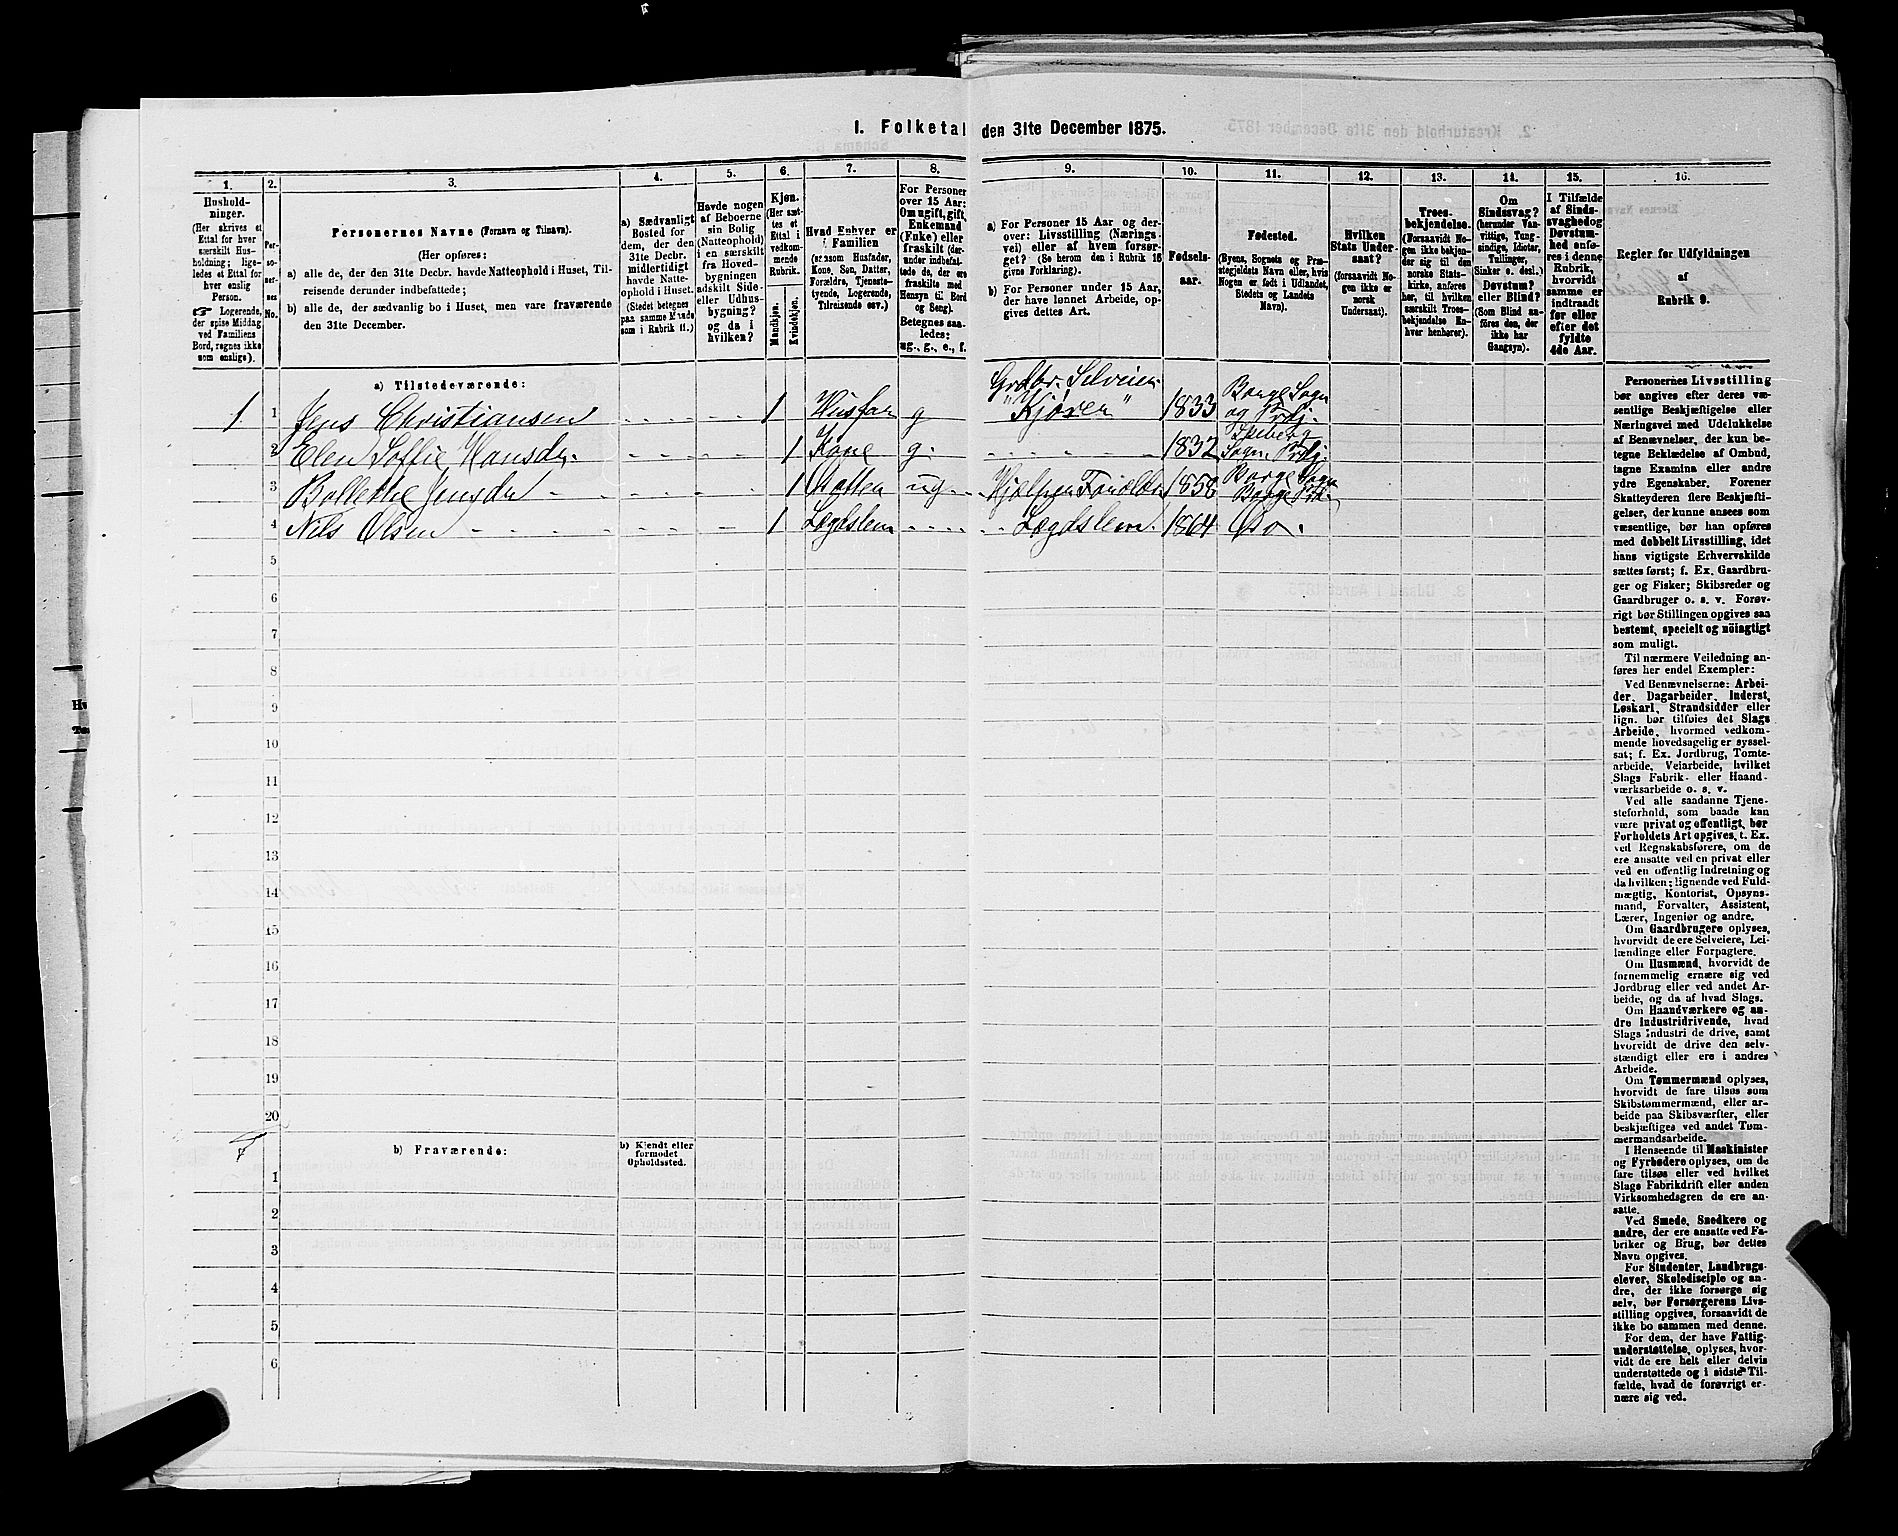 1. Folketal den 31te December 1875.
1.
Hushold-
ninger.
(Her skrives et
Ettal for hver
særskilt Hus-
holdning; lige-
ledes et Ettal for
hver enslig
Person.
☞ Logerende,
der spise Middag
ved Familiens
Bord, regnes ikke
som enslige).
2.
Per-
so-
ner-
nes
No.
3.
Personernes Navne (Fornavn og Tilnavn).
(Her opføres:
a) alle de, der den 31te Decbr. havde Natteophold i Huset, Til-
reisende derunder indbefattede;
b) alle de, der sædvanlig bo i Huset, men vare fraværende
den 31te December.
4.
a) Sædvanligt
Bosted for
dem, der den
31te Decbr.
midlertidigt
havde Natte-
ophold i Huset.
(Stedet betegnes
paa samme Maade
som i Rubrik 11.)
5.
Havde nogen
af Beboerne
sin Bolig
(Natteophold)
i en særskilt
fra Hoved-
bygningen
adskilt Side-
eller Udhus-
bygning?
og da i
hvilken?
6.
Kjøn.
(Her sæt-
tes et
Ettal i
vedkom-
mende
Rubrik.
Mandkjøn.
Kvindekjøn.
7.
Hvad Enhver er
i Familien
(saasom Husfader,
Kone, Søn, Datter,
Forældre, Tjeneste-
tyende, Logerende,
Tilreisende osv.)
8.
For Personer
over 15 Aar:
Om ugift, gift,
Enkemand
(Enke) eller
fraskilt (der-
under indbefat-
tede de, der ere
fraskilte med
Hensyn til Bord
og Seng).
Betegnes saa-
ledes:
ug., g., e., f.
9.
a) For Personer 15 Aar og der-
over: Livsstilling (Nærings-
vei) eller af hvem forsør-
get? (Se herom den i Rubrik 16
givne Forklaring).
b) For Personer under 15 Aar,
der have lønnet Arbeide, op-
gives dettes Art.
10.
Fødsels-
aar.
11.
Fødested.
(Byens, Sognets og Præ-
stegjeldets Navn eller, hvis
Nogen er født i Udlandet,
Stedets og Landets
Navn).
12.
Hvilken
Stats Under-
saat?
(forsaavidt No-
gen ikke er
norsk
Undersaat).
13.
Troes-
bekjendelse.
(Forsaavidt No-
gen ikke bekjen-
der sig til den
norske Stats-
kirke, anføres
her, til hvilken
særskilt Troes-
bekjendelse En-
hver henhører).
14.
Om
Sindssvag?
(herunder Van-
vittige, Tung-
sindige, Idioter,
Tullinger,
Sinker o. desl.)
Døvstum?
eller Blind?
(Som Blind an-
føres den, der
ikke har
Gangsyn).
15.
I Tilfælde
af Sinds-
svaghed og
Døvstum-
hed anfø-
res i denne
Rubrik,
hvorvidt
samme er
indtraadt
før eller
efter det
fyldte
4de Aar.
16.
Regler for Udfyldningen
af
Rubrik 9.
a) Tilstedeværende:
1 1 Jens Christiansen 1 Husfar g Grdbr. Selveier "Kjøren" 1833 Borge Sogn og Prstgj.
2 Elen Soffie Hansdr. 1 Kone g. 1832 Sogn Prstgj.
3 Bollette Jensdr 1 Datter ug 1858 Borge Sogn Borge
4 Nils Olsen 1 Lægdslem Lægdslem. 1864 Dso.
5
6
7
8
9
10
11
12
13
14
15
16
17
18
19
20
b) Fraværende:
b) Kjendt eller
formodet
Opholdssted.
1
2
3
4
5
6
Personernes Livsstilling
bør angives efter deres væ-
sentlige Beskjæftigelse eller
Næringsvei med Udelukkelse
af Benævnelser, der kun be-
tegne Beklædelse af Ombud,
tagne Examina eller andre
ydre Egenskaber. Forener
Skatteyderen flere Beskjæfti-
gelser, der kunne ansees som
væsentlige, bør han opføres
med dobbelt Livsstilling, idet
hans vigtigste Erhvervskilde
sættes først; f. Ex. Gaardbru-
ger og Fisker; Skibsreder og
Gaardbruger o. s. v. Forøv-
rigt bør Stillingen opgives saa
bestemt, specielt og nöiagtigt
som muligt.
Til nærmere Veiledning an-
føres her endel Exempler:
Ved Benævnelserne: Arbei-
der, Dagarbeider, Inderst,
Løskarl, Strandsidder eller
lign. bør tilføies det Slags
Arbeide, hvormed vedkom-
mende hovedsagelig er syssel-
sat; f. Ex. Jordbrug, Tomte-
arbeide, Veiarbeide, hvilket
Slags Fabrik- eller Haand-
værksarbeide o. s. v.
Ved alle saadanne Tjene-
steforhold, som baade kan
være privat og offentligt, bør
Forholdets Art opgives, t. Ex.
ved Regnskabsførere, om de
ere ansatte ved en privat eller
ved en offentlig Indretning og
da hvilken; lignende ved Fuld-
mægtig, Kontorist, Opsyns-
mand, Forvalter, Assistent,
Lærer, Ingeniør og andre.
Om Gaardbrugere oplyses,
hvorvidt de ere Selveiere, Lei-
lændinge eller Forpagtere.
Om Husmænd, hvorvidt de
fornemmelig ernære sig ved
Jordbrug eller ved andet Ar-
beide, og da af hvad Slags.
Om Haandværkere og an-
dre Industridrivende, hvad
Slags Industri de drive, samt
hvorvidt de drive den selv-
stændigt eller ere i andres
Arbeide.
Om Tømmermænd oplyses,
hvorvidt de fare tilsøs som
Skibstømmermænd, eller ar-
beide paa Skibsværfter, eller
beskjæftiges ved andet Tøm-
mermandsarbeide.
I Henseende til Maskinister
og Fyrbødere oplyses, om de
fare tilsøs eller ved hvilket
Slags Fabrikdrift eller anden
Virksomhedsgren de ere an-
satte.
Ved Smede, Snedkere og
andre, der ere ansatte ved Fa-
briker og Brug, bør dettes
Navn opgives.
For Studenter, Landbrugs-
elever, Skoledisciple og an-
dre, der ikke forsørge sig
selv, bør Forsørgerens Livs-
stilling opgives, forsaavidt de
ikke bo sammen med denne.
For dem, der have Fattig-
understøttelse, oplyses, hvor-
vidt de ere helt eller delvis
understøttede og i sidste Til-
fælde, hvad de forøvrigt er-
nære sig ved.